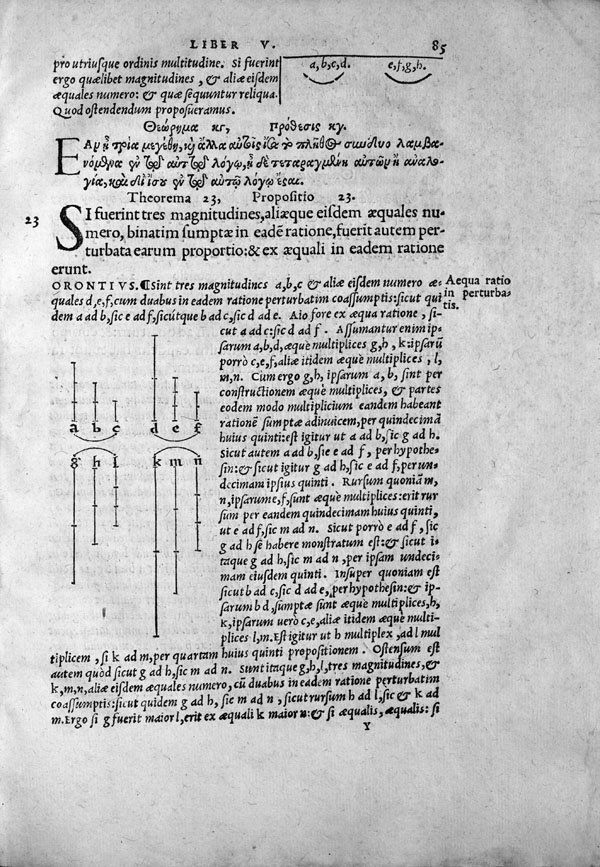 LIBER V. 85
pro utriusque ordinis multitudine. Si fuerint
ergo quælibet magnitudines, & aliæ eisdem
æquales numero: & quæ sequuntur reliqua.
Quod ostendendum proposueramus.
a,b,c,d. e,f,g,h.
Θεώρημα κγ, Πρόθεσις κγ.
Theorema 23, Propositio 23.
23
SI fuerint tres magnitudines, aliæque eisdem æquales nu-
mero, binatim sumptæ in eadē ratione, fuerit autem per-
turbata earum proportio: & ex æquali in eadem ratione
erunt.
ORONTIVS. ¶Sint tres magnitudines a,b,c & aliæ eisdem numero æ-
quales d,e,f, cum duabus in eadem ratione perturbatim coassumptis: sicut qui
dem a ad b, sic e ad f, sicútque b ad c, sic d ad e. Aio fore ex æqua ratione, si-
Aequa ratio
in perturba-
tis.
cut a ad c: sic d ad f. Assumantur enim ip-
sarum a,b,d, æquè multiplices g,h,k: ipsarū
porrò c,e,f, aliæ itidem æquè multiplices, l,
m,n. Cum ergo g,h, ipsarum a,b, sint per
constructionem æquè multiplices, & partes
eodem modo multiplicium eandem habeant
rationē sumptæ adinuicem, per quindecimā
huius quinti: est igitur ut a ad b, sic g ad h.
Sicut autem a ad b, sic e ad f, per hypothe-
sin: & sicut igitur g ad h, sic e ad f, per un-
decimam ipsius quinti. Rursum quoniā m,
n, ipsarum e,f, sunt æquè multiplices: erit rur
sum per eandem quindecimam huius quinti,
ut e ad f, sic m ad n. Sicut porrò e ad f, sic
g ad h se habere monstratum est: & sicut i-
taque g ad h, sic m ad n, per ipsam undeci-
mam eiusdem quinti. Insuper quoniam est
sicut b ad c, sic d ad e, per hypothesin: & ip-
sarum b d, sumptæ sunt æquè multiplices, h,
k, ipsarum uerò c,e, aliæ itidem æquè multi-
plices l,m. Est igitur ut h multiplex, ad l mul
tiplicem, si k ad m, per quartam huius quinti propositionem. Ostensum est
autem quòd sicut g ad h, sic m ad n. Sunt itaque g,h,l, tres magnitudines, &
k,m,n, aliæ eisdem æquales numero, cū duabus in eadem ratione perturbatim
coassumptis: sicut quidem g ad h, sic m ad n, sicut rursum h ad l, sic & k ad
m. Ergo si g fuerit maior l, erit ex æquali k maior n: & si æqualis, æqualis: si
Y
a b c d e f
g h l k m n